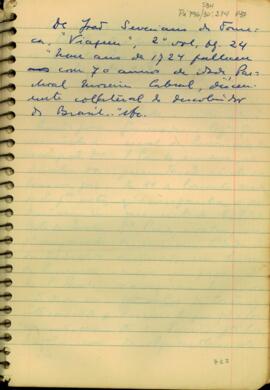 De João Severiano da Fonse-
ca, "Viagem", 2º vol, pg. 24
"Neste ano de 1724 falleceu
com 70 annos de idade, Pas-
choal Moreira Cabral, descen-
dente collateral do descobridor
do Brasil."